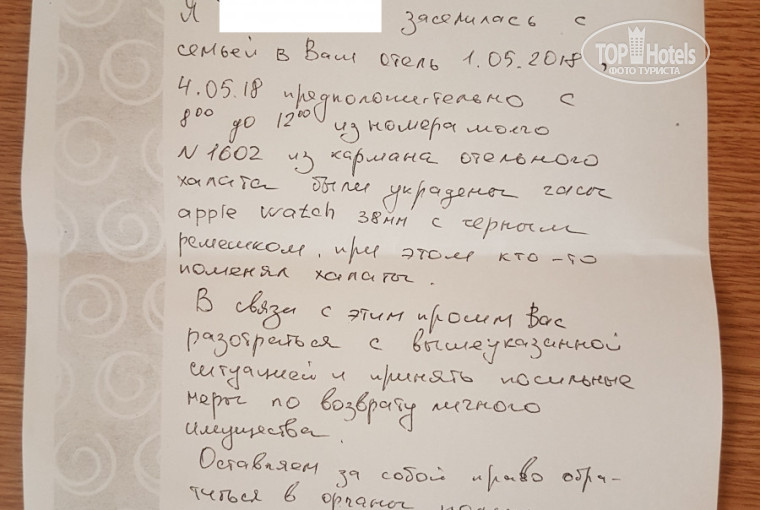 Я заселилась с
семьей в Ваш отель 1.05.2018,
4.05.18 предположительно с
8⁰⁰ до 12⁰⁰ из номера моего
N 1602 из кармана отельного
халата были украдены часы
apple watch 38мм с черным
ремешком, при этом кто-то
поменял халаты.
В связи с этим просим Вас
разобраться с вышеуказанной
ситуацией и принять посильные
меры по возврату личного
имущества.
Оставляем за собой право обра-
титься в органы
TOPHotels
ФОТО ТУРИСТА